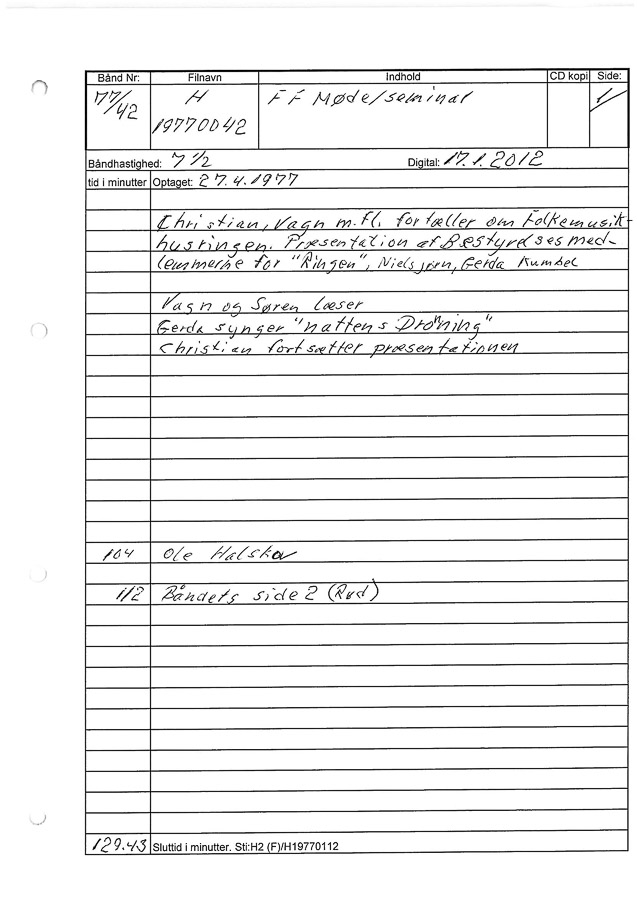 Bånd Nr: Filnavn Indhold CD kopi Side:
77/42 H FF Møde/seminar 1/
19770042
Båndhastighed: 7 1/2 Digital: 17.1.2012
tid i minutter Optaget: 27.4.1977
Christian, Vagn m.fl. fortæller om Folkemusik-
husringen. Præsentation af Bestyrelsesmed-
lemmerne for "Ringen", Nielsjørn, Gerda Kumbel
Vagn og Søren læser
Gerda synger "nattens Dronning"
Christian fortsætter præsentationen
104 Ole Halskov
112 Båndets side 2 (Rud)
129.43 Sluttid i minutter. Sti:H2 (F)/H19770112